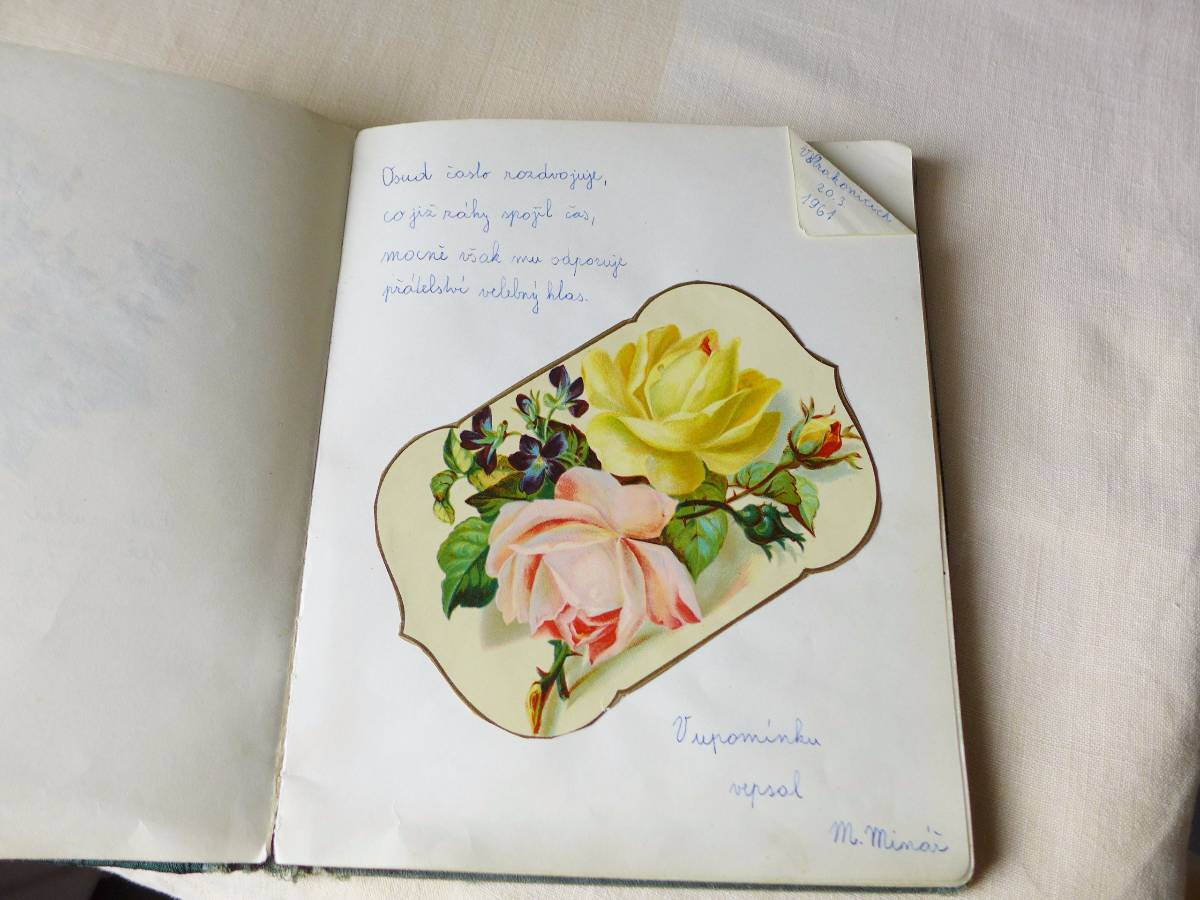 Osud často rozdvojuje,
co již záhy spojil čas,
mocně však mu odporuje
přátelství velebný hlas.
V Strakonicích
20.3.
1961
V upomínku
vepsal
M. Minář